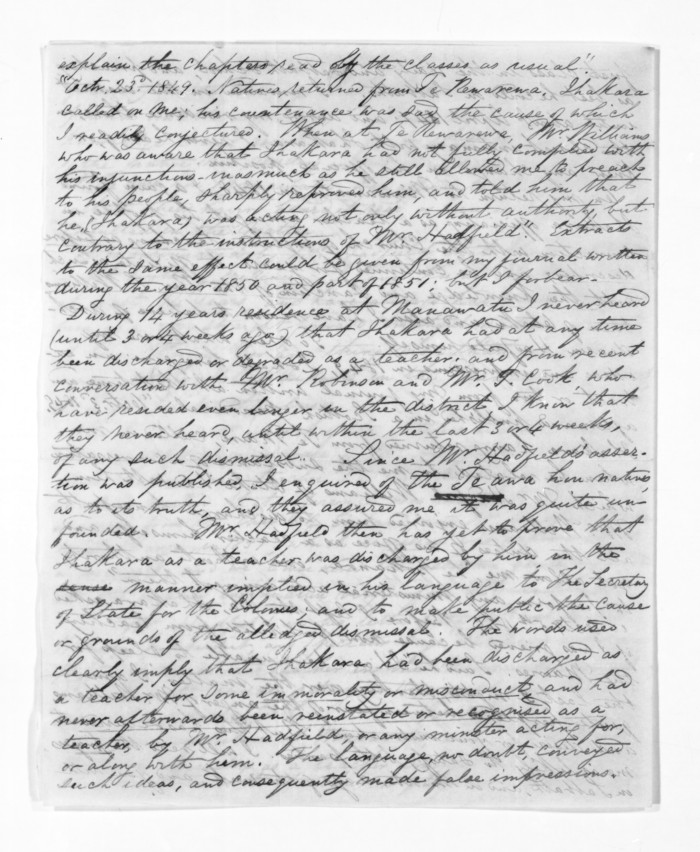 explain the chapters read by the classes as usual."
"Octr. 23d 1849. Natives returned from Te Rewarewa. Ihakara
called on me; his countenance was sad, the cause of which
I readily conjectured. When at Te Rewarewa, Mr. Williams
who was aware that Ihakara had not fully complied with
his injunctions - inasmuch as he still allowed me to preach
to his people, sharply reproved him, and told him that
he, (Ihakara) was acting not only without authority, but
contrary to the instructions of Mr. Hadfield". Extracts
to the same effect could be given from my journal written
during the year 1850 and part of 1851: but I forbear.
During 14 years residence at Manawatu I never heard
(until 3 or 4 weeks ago) that Ihakara had at any time
been discharged or degraded as a teacher: and from recent
conversation with Mr. Robinson and Mr. T. Cook, who
have resided even longer in the district, I know that
they never heard, until within the last 3 or 4 weeks,
of any such dismissal. Since Mr. Hadfield's asser-
tion was published, I enquired of the Te awa hou natives,
as to its truth, and they assured me it was quite un-
founded. Mr. Hadfield then has yet to prove that
Ihakara as a teacher was discharged by him in the
sense manner implied in his language to The Secretary
of State for the Colonies; and to make public the cause
or grounds of the alledged dismissal. The words used
clearly imply that Ihakara had been discharged as
a teacher for some immorality or misconduct, and had
never afterwards been reinstated or recognised as a
teacher, by Mr. Hadfield, or any minister acting for,
or along with him. The language, no doubt, conveyed
such ideas, and consequently made false impressions.